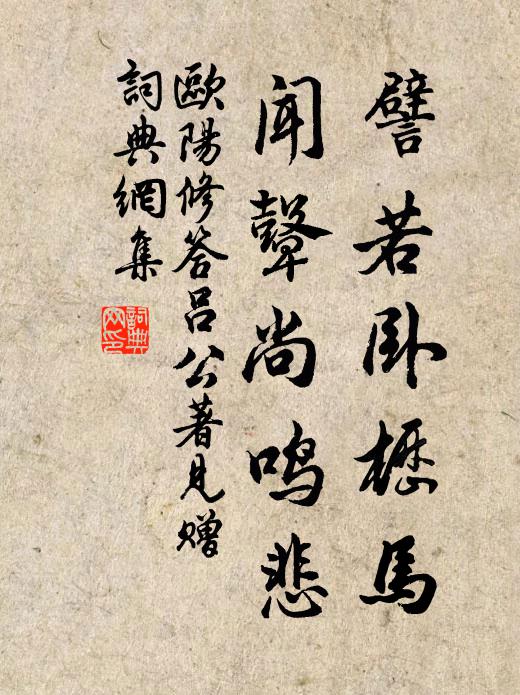 譬若卧櫪馬
聞鼙尚鳴悲
歐陽修答呂公著見贈
詞典網集
詞典網印